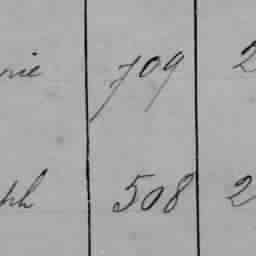 nie 709 2
eph 508 2